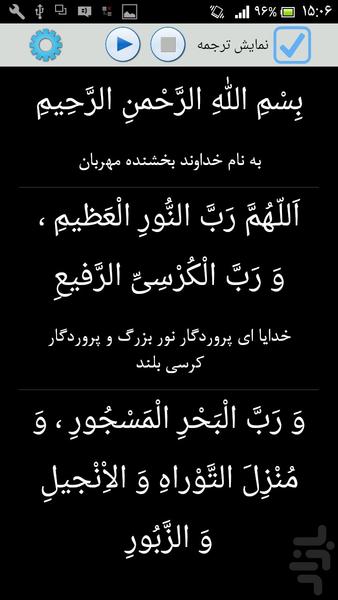 ۹۶% ۱۵:۰۶
نمایش ترجمه
بِسْمِ اللَّهِ الرَّحْمنِ الرَّحِیمِ
به نام خداوند بخشنده مهربان
اَللّهُمَّ رَبَّ النُّورِ الْعَظیمِ ،
وَ رَبَّ الْکُرْسِیِّ الرَّفیعِ
خدایا ای پروردگار نور بزرگ و پروردگار
کرسی بلند
وَ رَبَّ الْبَحْرِ الْمَسْجُورِ ، وَ
مُنْزِلَ التَّوْراهِ وَ الْاِنْجیلِ
وَ الزَّبُورِ
بازار